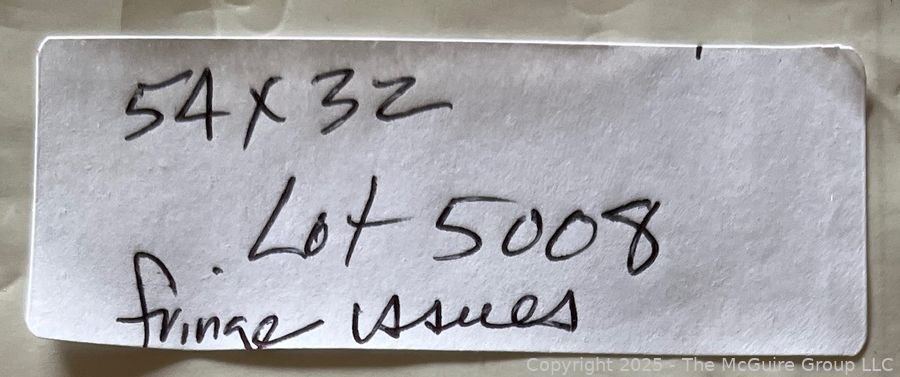 54 x 32
Lot 5008
fringe issues
Copyright 2025 - The McGuire Group LLC